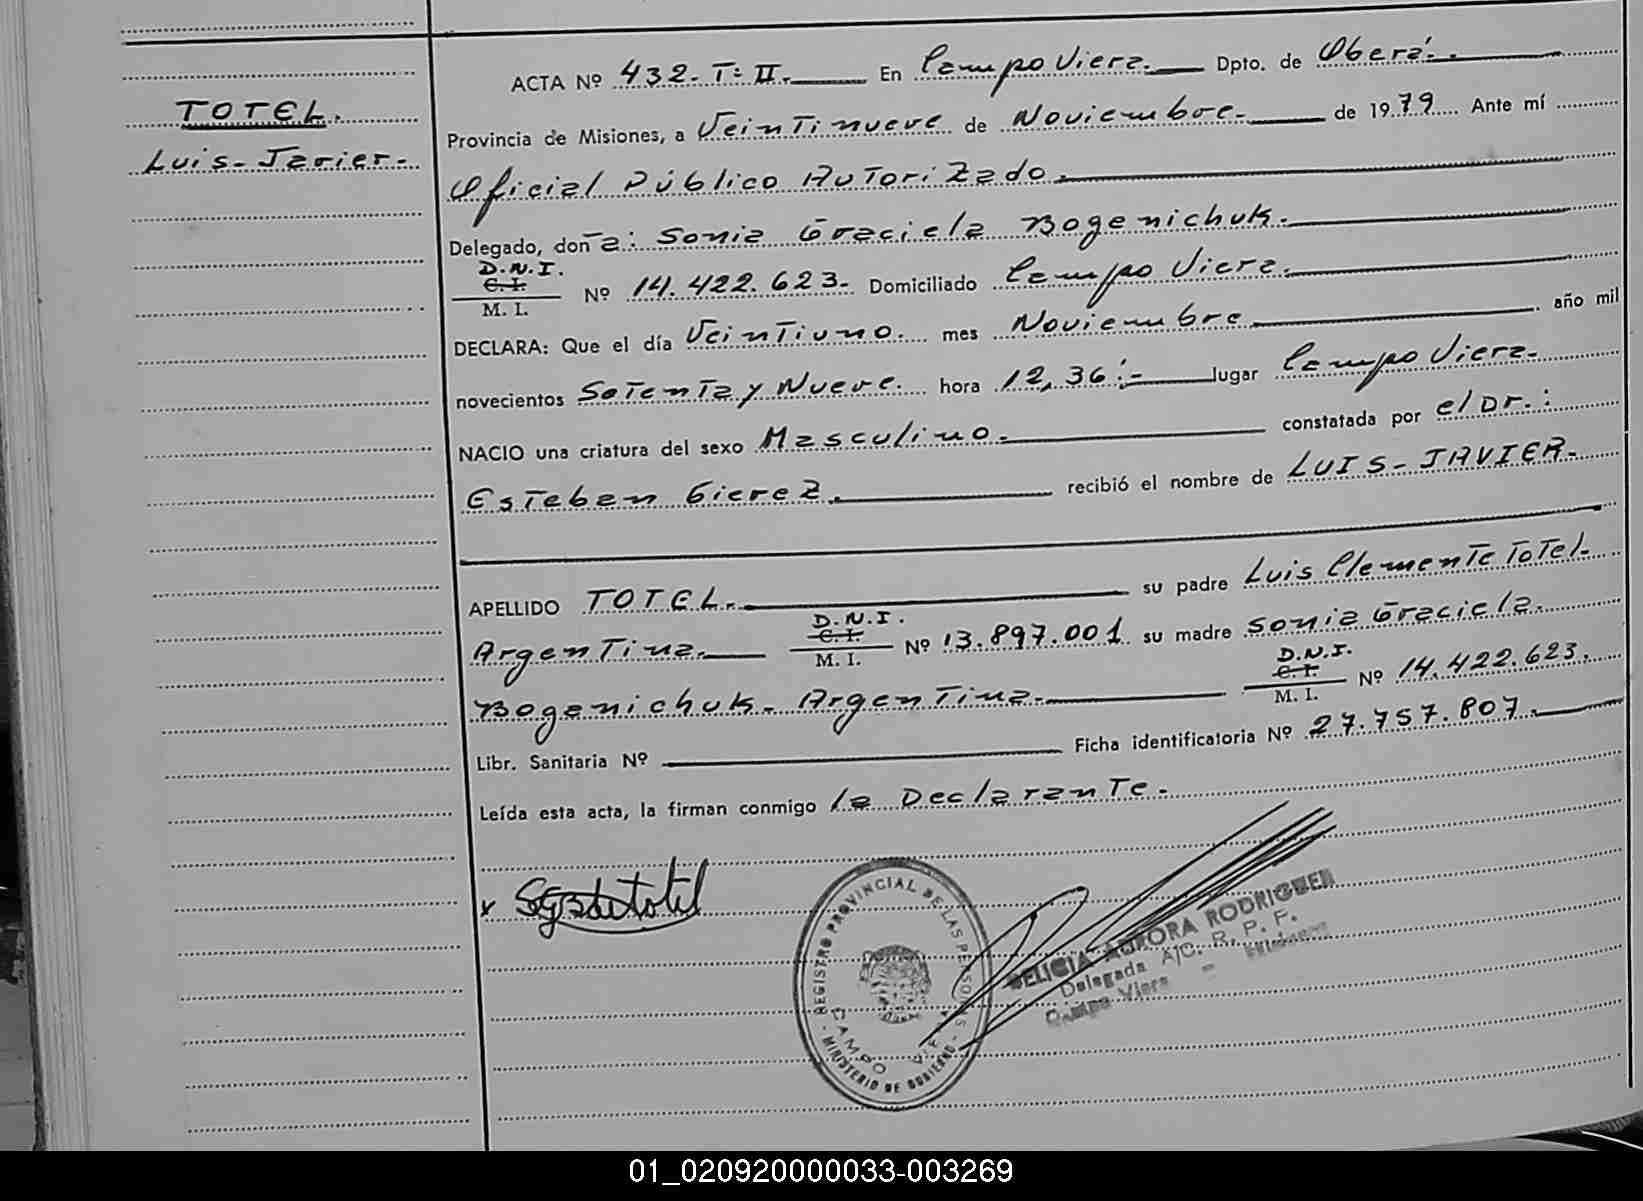 TOTEL.
Luis-Javier-
ACTA Nº 432-T:II. En Campo Viera. Dpto. de Oberá.
Provincia de Misiones, a Veintinueve de Noviembre. de 1979 Ante mí
Oficial Público Autorizado.
Delegado, doña: Sonia Graciela Bogenichuk.
D.N.I.
C. I.
M. I.
Nº 14.422.623- Domiciliado Campo Viera.
DECLARA: Que el día Veintiuno. mes Noviembre año mil
novecientos Setenta y Nueve. hora 12,36:- lugar Campo Viera-
NACIO una criatura del sexo Masculino. constatada por el Dr.:
Esteban Gierez. recibió el nombre de LUIS-JAVIER-
APELLIDO TOTEL. su padre Luis Clemente Totel-
Argentina. D.N.I. C. I. M. I. Nº 13.897.001 su madre Sonia Graciela.
Bogenichuk- Argentina. D.N.I. C. I. M. I. Nº 14.422.623.
Libr. Sanitaria Nº Ficha identificatoria Nº 27.757.807.
Leída esta acta, la firman conmigo la Declarante.
REGISTRO PROVINCIAL DE LAS PERSONAS
- MINISTERIO DE GOBIERNO -
CAMPO
AURORA RODRIGUEZ
Delegada A/C. R. P. F.
Campo Viera - Misiones
01_020920000033-003269